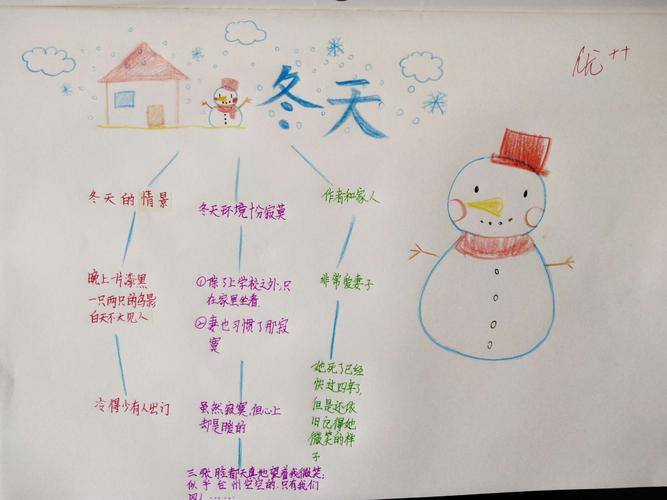 优++
冬天
冬天的情景
冬天环境十份寂莫
作者和家人
晚上一片漆黑
一只两只的乌影
白天不大见人
①除了上学校之外,只
在家里坐着
②妻也习惯了那寂
寞
非常爱妻子
冷得少有人出门
虽然寂寞,但心上
却是暖的
她死了已经
快过四年了,
但是还依
旧记得她
微笑的样
子
三张脸都天真地望着我微笑;
似乎台州空空的,只有我们